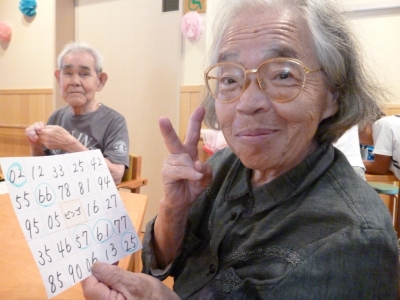 02 12 33 25 42
55 66 78 81 94
95 05 ビンゴ 16 27
35 46 57 61 77
85 90 06 13 25